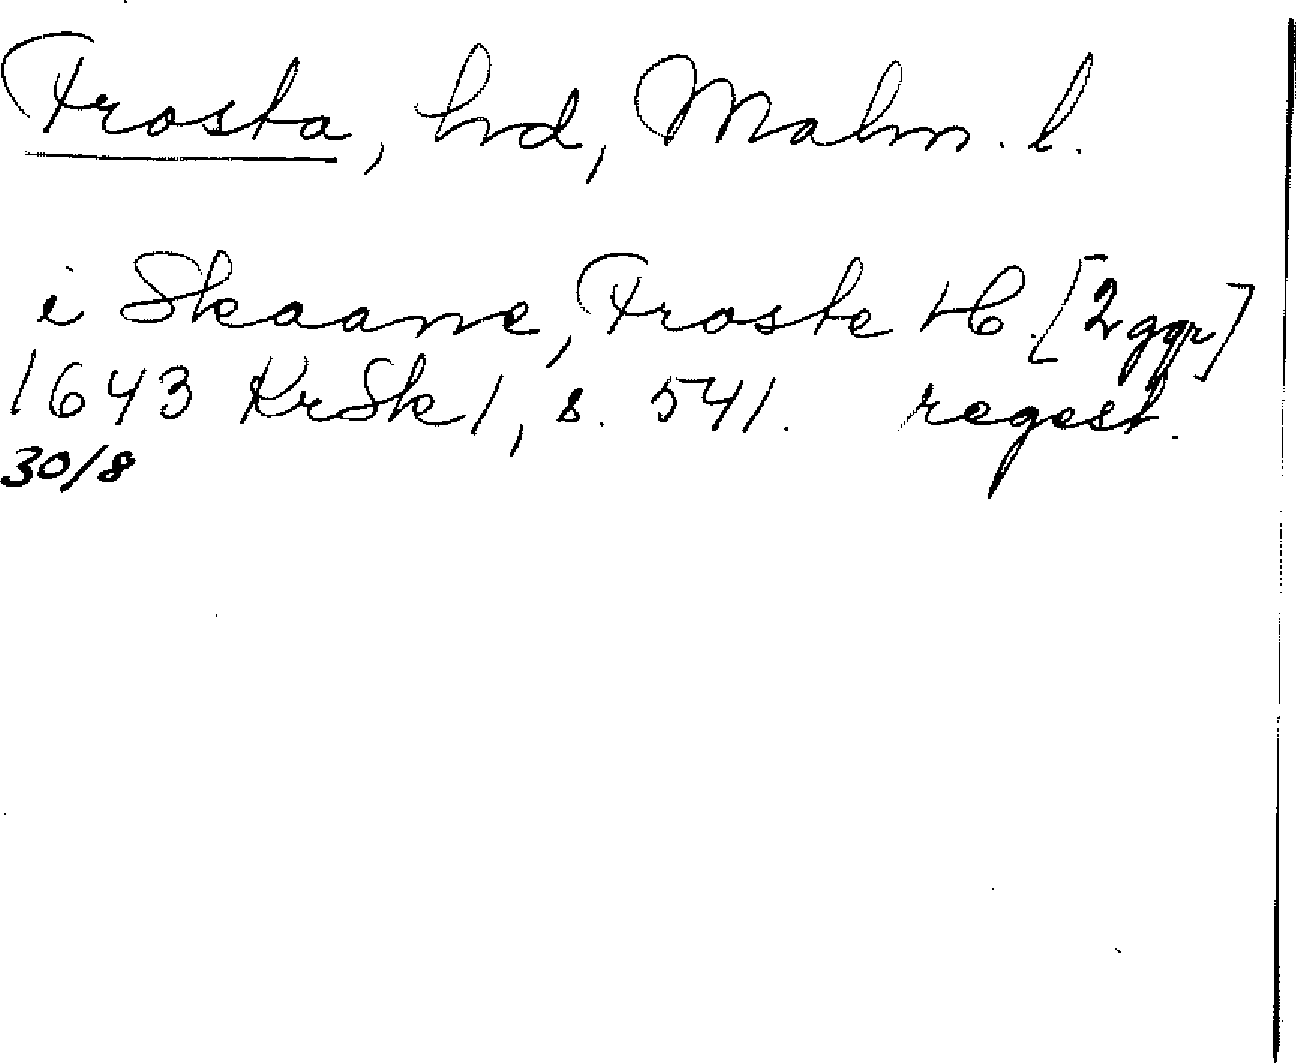 Frosta, hd, Malm. l.
i Skaane, Froste H. [2 ggr]
1643 KrSk 1, s. 541. regest.
30/8